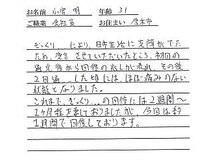 お名前 小宮 明 年齢 31
ご職業 会社員 お住まい 厚木市
ぎっくり により、日常生活に支障がでた
ため、受診させていただいたところ、初回の
施術後から回復の兆しが表れ、その後
2日通 した頃には、ほぼ痛みのない
状態となりました。
これまで、ぎっくり の回復には2週間〜
1ヶ月程を要しておりましたが、今回は約
1週間で回復しております。